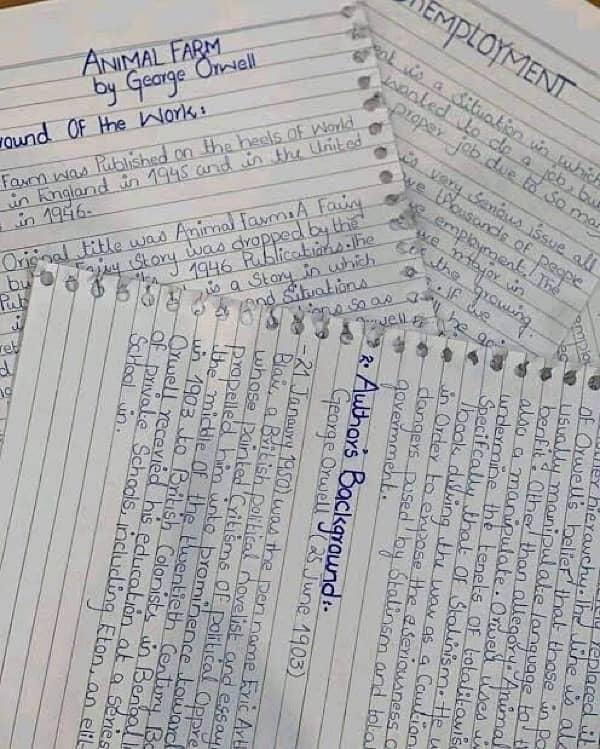 ANIMAL FARM
by George Orwell
ound Of the Work:
Farm was Published on the heels of World
in England in 1945 and in the United
in 1946.
Original title was Animal Farm: A Fairy
Fairy Story was dropped by the
1946 Publications. The
is a Story in which
and Situations
so as
EMPLOYMENT
is a situation in which
wanted to do a job, but
proper job due to so man
is very serious issue all
thousands of people
employment. The
major in
the growing
. If we
he
2: Author's Background:-
George Orwell (25 June 1903)
- 21 January 1950) was the pen name Eric Arth
Blair, a British political novelist and essay
whose pointed Critisms of Political Oppre
propelled him unto prominence toward
the middle of the twentieth Century. Bo
in 1903 to British Colonists in Bengal In
Orwell recevied his education at a series
of private Schools, including Eton, an elit
School in.
replaced it
hierarchy. The line is al
of Orwell's belief that those in Po
usually manipulate language to
benfit. Other than allegory, Animal
also a manipulate. Orwell uses i
undermine the tenets of totalitaris
Specifically that of Stalinism. He w
book driving the war as a Caution
in Order to expose the seriousness o
dangers posed by Stalinsm and tota
government.